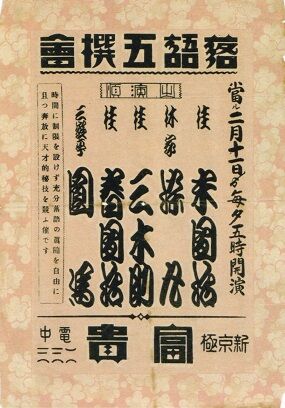 落語五撰會
當ル二月十一日より毎夕五時開演
出演順
桂 米團治
林家 染丸
桂 三木助
桂 春團治
三遊亭 圓馬
時間に制限を設けず充分落語の眞髓を自由に
且つ奔放に天才的秘技を競ふ催です
新京極
富貴
電中